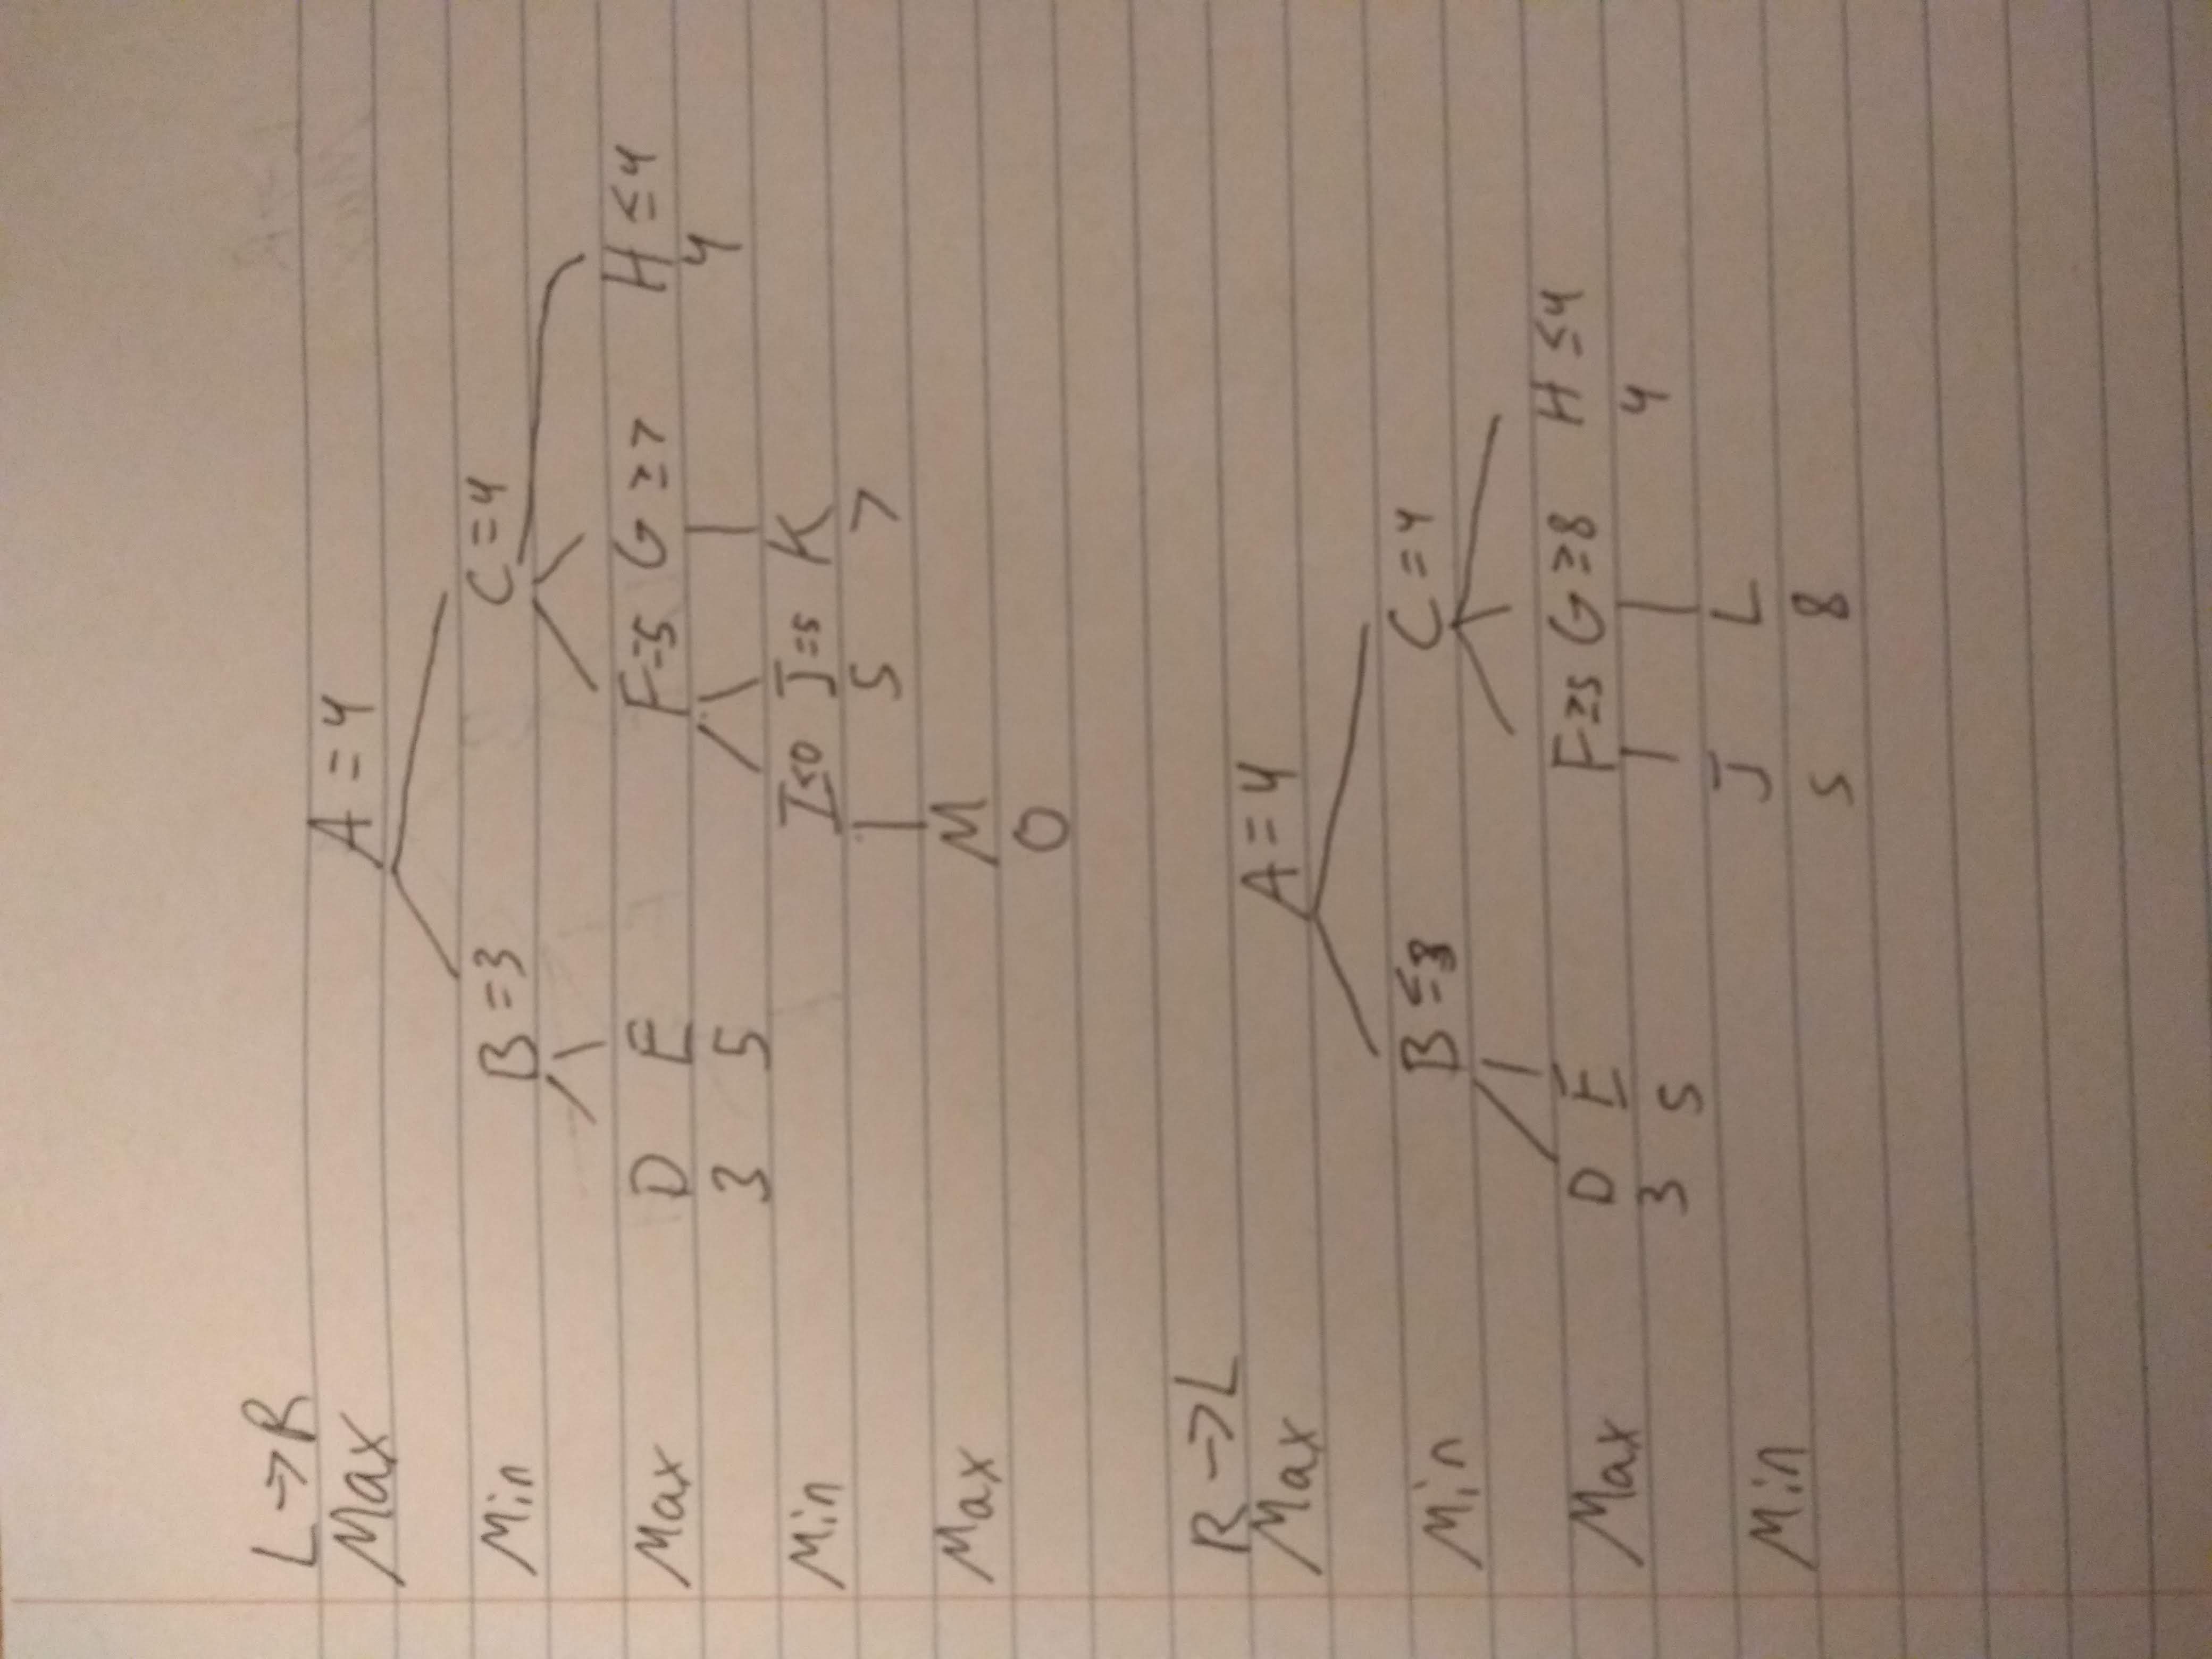 L → R
Max A = 4
Min B = 3 C = 4
Max D E F = 5 G ≥ 7 H ≤ 4
3 5 4
Min I ≤ 0 J = 5 K
5 7
Max M
0
R → L
Max A = 4
Min B ≤ 3 C = 4
Max D E F ≥ 5 G ≥ 8 H ≤ 4
3 5 4
Min J L
5 8